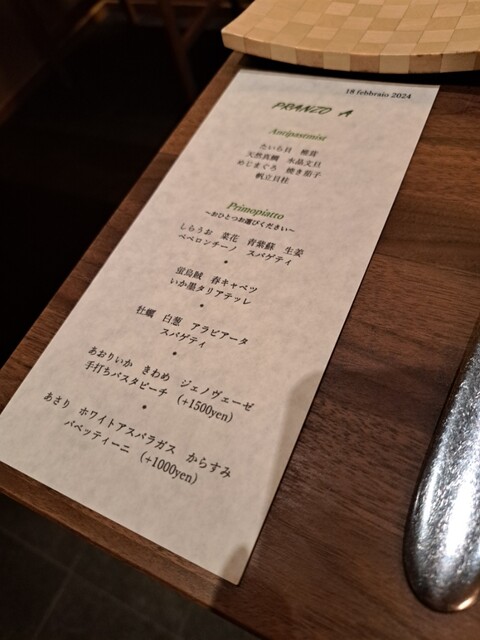 18 febbraio 2024
PRANZO A
Antipastmist
たいら貝 椎茸
天然真鯛 水晶文旦
めじまぐろ 焼き茄子
帆立貝柱
Primopiatto
~おひとつお選びください~
しらうお 菜花 青紫蘇 生姜
ペペロンチーノ スパゲティ
•
蛍烏賊 春キャベツ
いか墨タリアテッレ
•
牡蠣 白葱 アラビアータ
スパゲティ
•
あおりいか きわめ ジェノヴェーゼ
手打ちパスタピーチ (+1500yen)
•
あさり ホワイトアスパラガス からすみ
バベッティーニ (+1000yen)